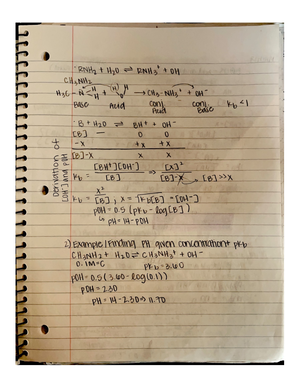 -RNH₂ + H₂O ⇌ RNH₃⁺ + OH
CH₃NH₂
H₃C - N H H + H H → CH₃-NH₃⁺ + OH⁻
Base Acid Conj. Acid Conj. Base Kb < 1
Derivation of [OH⁻] and pH
- B + H₂O ⇌ BH⁺ + OH⁻
[B] — 0 0
-X +X +X
[B]-X X X
Kb = [BH⁺][OH⁻] / [B] ⇒ [X]² / [B]-X → [B] >> X
Kb = X² / [B] , X = √Kb[B] = [OH-]
pOH = 0.5 (pKb - log[B])
↳ pH = 14 - pOH
2) Example: Finding pH given concentration + pKb
CH₃NH₂ + H₂O ⇌ CH₃NH₃⁺ + OH⁻
0.1M = C pKb = 3.60
pOH = 0.5 (3.60 - log(0.1))
pOH = 2.30
pH = 14 - 2.30 → 11.70